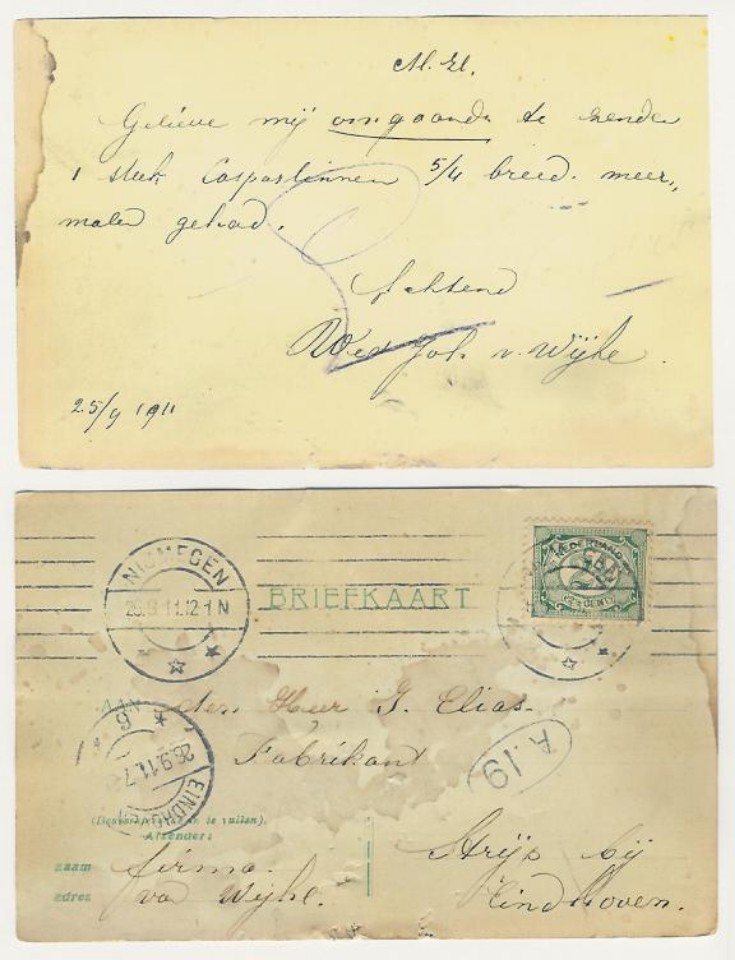 M. H.
Gelieve mij omgaande te zenden
1 stuk Casparlinnen 5/4 breed. meer„
malen gehad.
Achtend
Wed Joh. v. Wijhe.
25/9 1911
NIJMEGEN
26.9.11.12-1N
BRIEFKAART
NEDERLAND
2½
CENT
AAN den Heer J. Elias.
Fabrikant
A.19
6
26.9.11.7
EINDHOVEN
te vullen).
Afzender:
naam firma.
adres van Wijhe.
Strijp bij
Eindhoven.